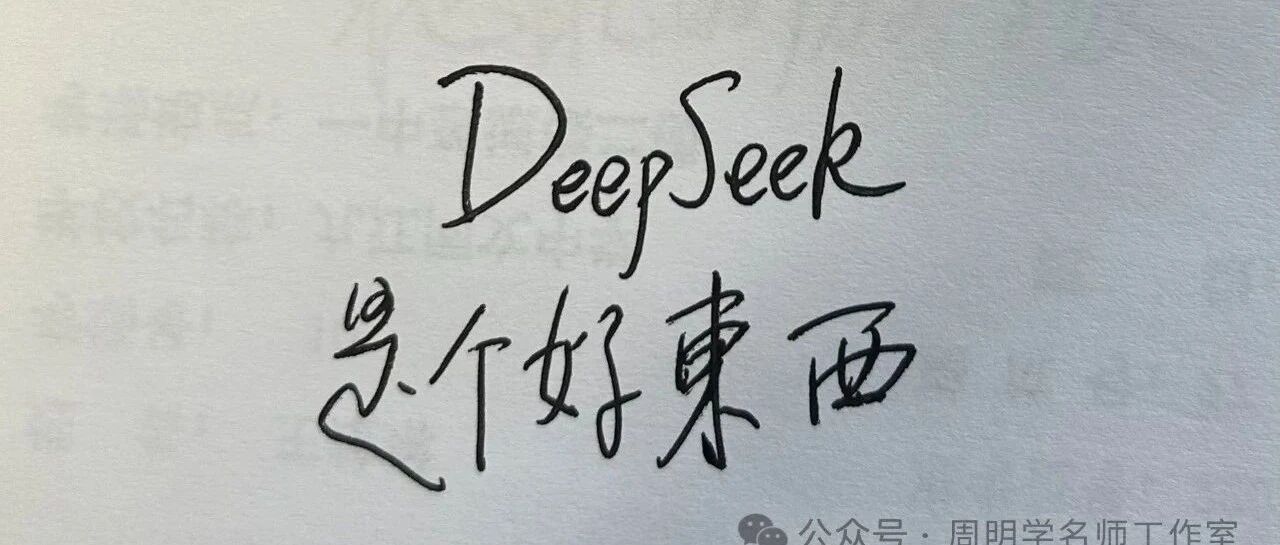 DeepSeek
是个好東西
公众号 · 周明学名师工作室